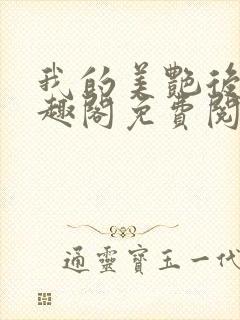 我的美艷後
趣閣免費閱
通靈寶玉一代